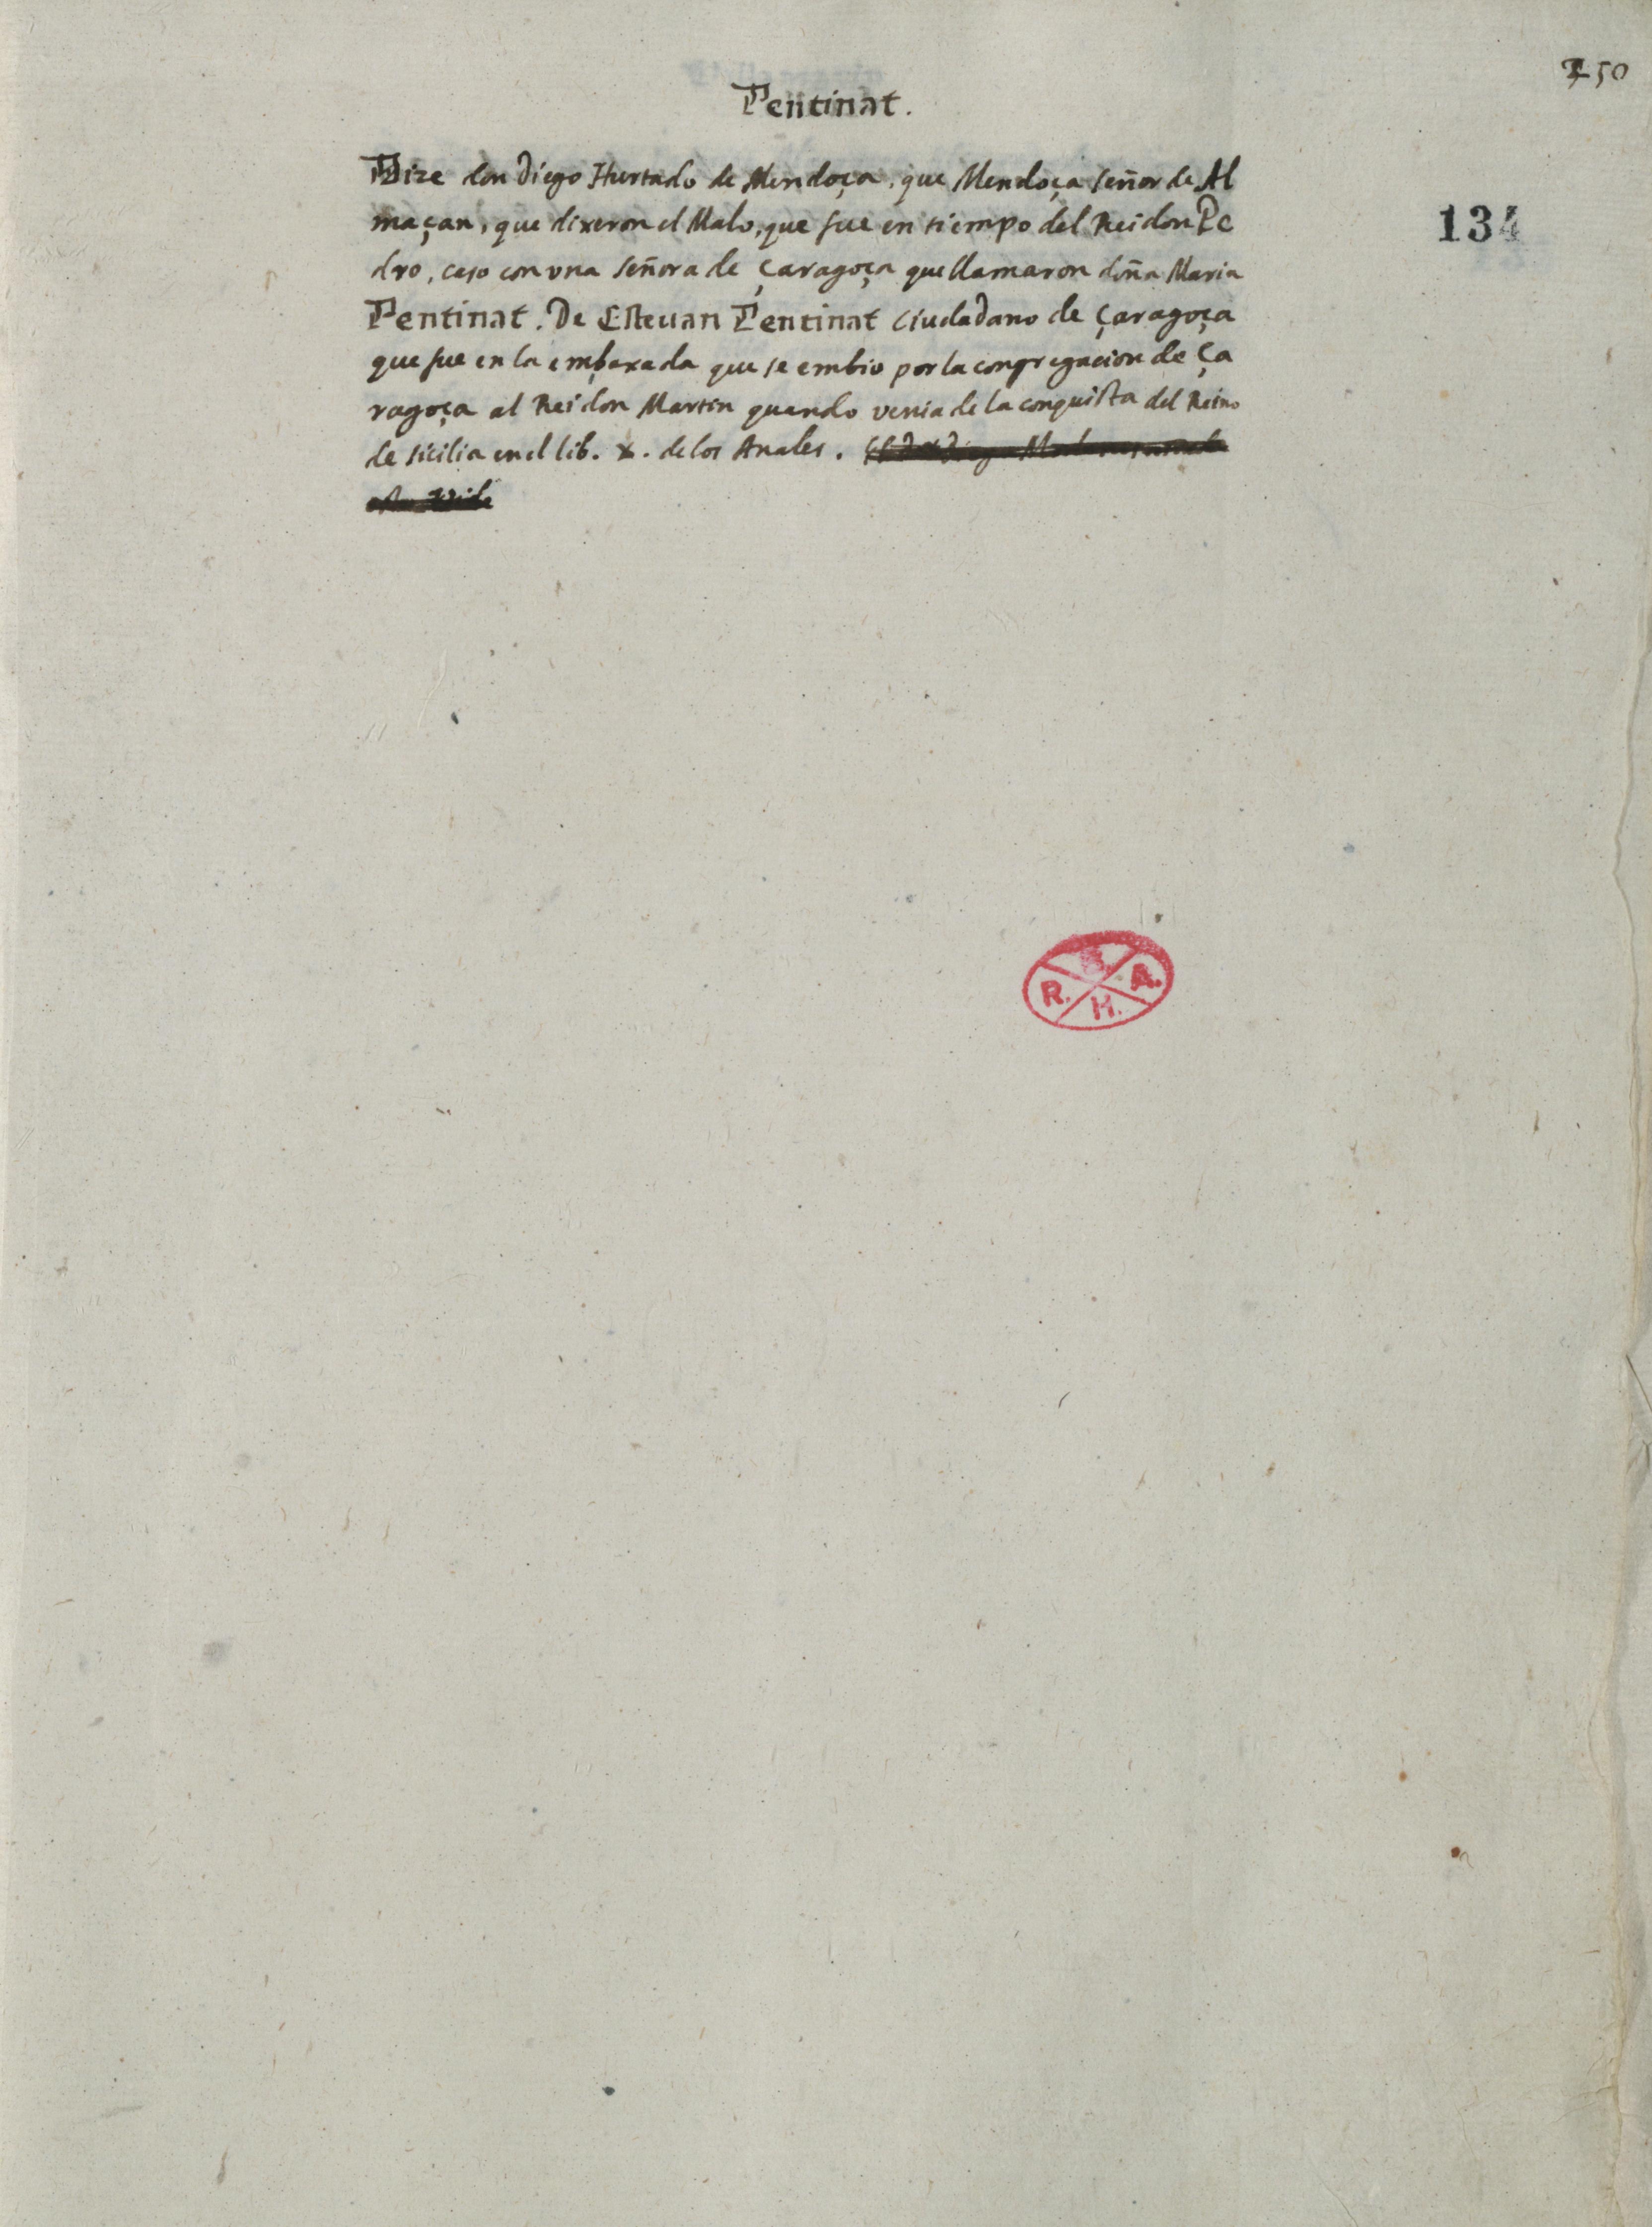 150
Pentinat.
Dize don Diego Hurtado de Mendoça, que Mendoça señor de Al
maçan, que dixeron el Malo, que fue en tiempo del Rei don Pe
dro, caso con vna señora de Çaragoça que llamaron doña Maria
Pentinat. De Esteuan Pentinat ciudadano de Çaragoça
que fue en la embaxada que se embio por la congregacion de Ça
ragoça al Rei don Martin quando venia de la conquista del Reino
de Sicilia en el lib. x. de los Anales.
134
R. H. A.